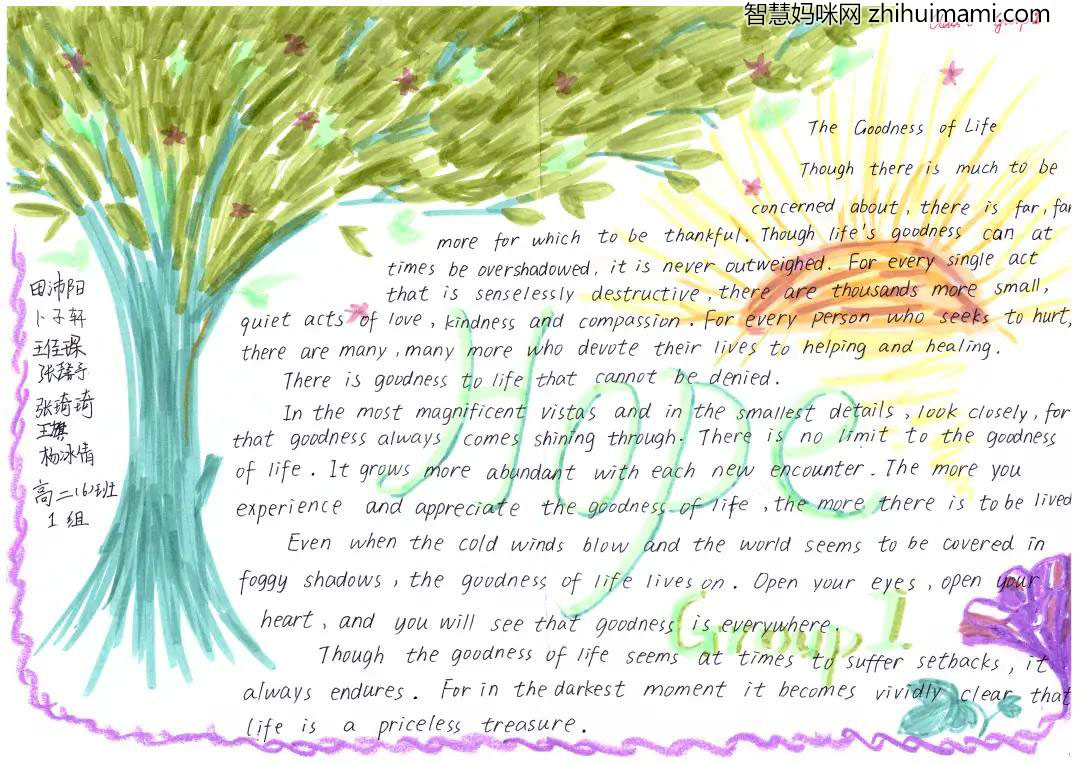 智慧妈咪网 zhihuimami.com
The Goodness of Life
Though there is much to be
concerned about, there is far, far
more for which to be thankful. Though life's goodness can at
times be overshadowed, it is never outweighed. For every single act
that is senselessly destructive, there are thousands more small,
quiet acts of love, kindness and compassion. For every person who seeks to hurt,
there are many, many more who devote their lives to helping and healing.
There is goodness to life that cannot be denied.
In the most magnificent vistas and in the smallest details, look closely, for
that goodness always comes shining through. There is no limit to the goodness
of life. It grows more abundant with each new encounter. The more you
experience and appreciate the goodness of life, the more there is to be lived
Even when the cold winds blow and the world seems to be covered in
foggy shadows, the goodness of life lives on. Open your eyes, open your
heart, and you will see that goodness is everywhere.
Though the goodness of life seems at times to suffer setbacks, it
always endures. For in the darkest moment it becomes vividly clear that
life is a priceless treasure.
Hope
Group 1
田沛阳
卜子轩
张琦琦
王旗
杨冰倩
高二(6)班
1组